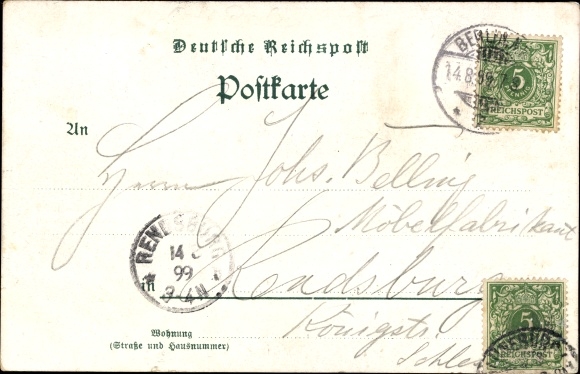 Deutsche Reichspost
Postkarte
BERLIN
14.8.99
5
REICHSPOST
An
Herrn Johs. Belling
Möbelfabrikant
RENDSBURG
14 8
99
3-4N
in Rendsburg
Königstr.
5
REICHSPOST
Wohnung
(Straße und Hausnummer)